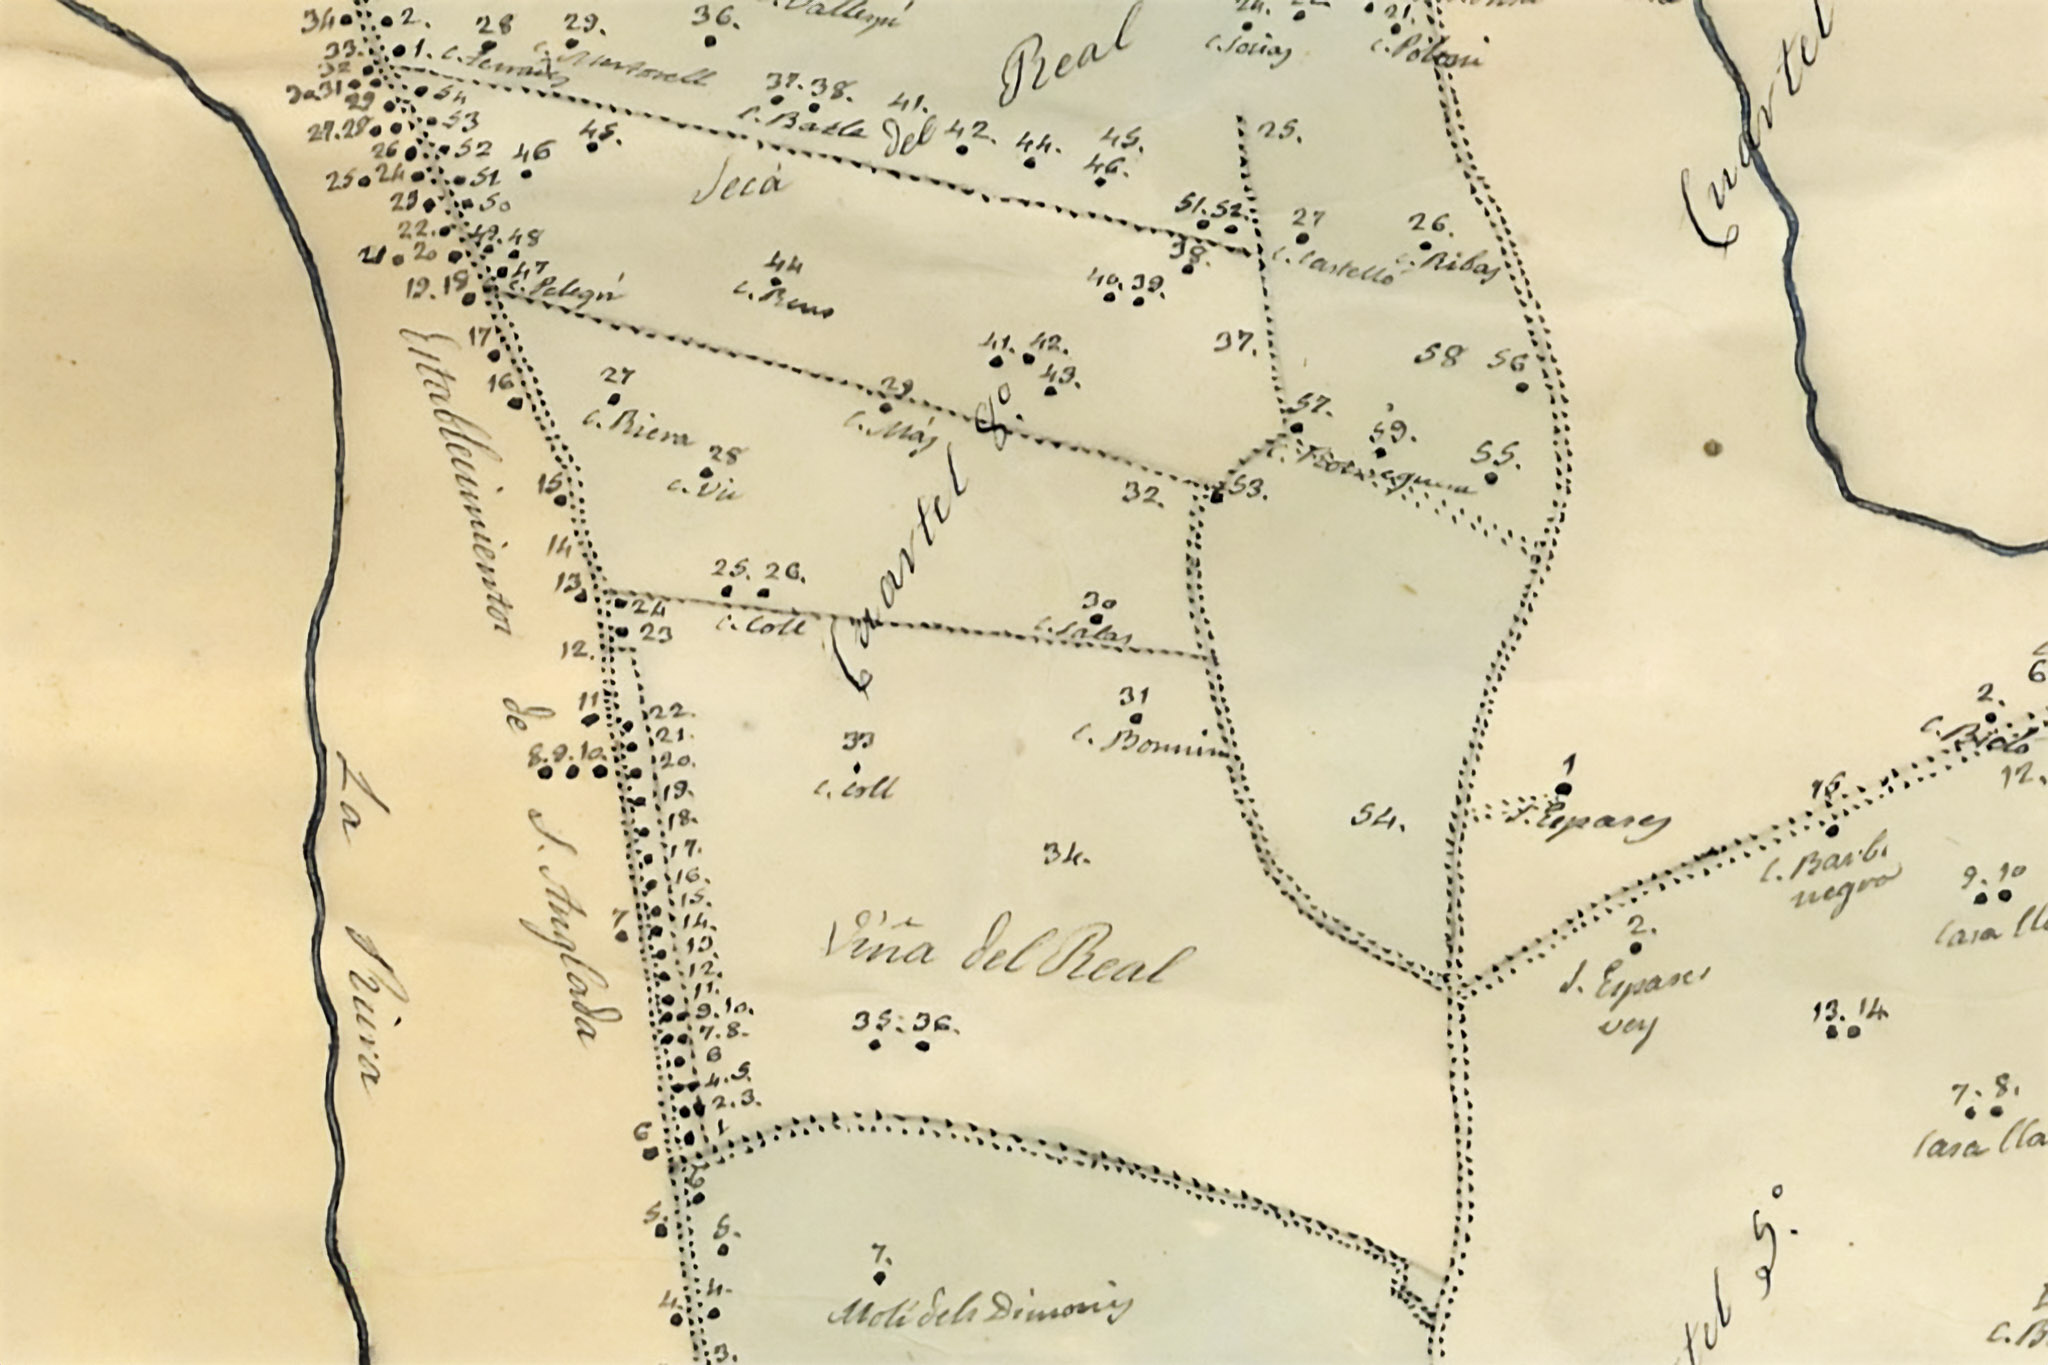 34 2. 28 29. 36. 21.
33. 1.
Real
C. Socias
32 54
30 31
37. 38. 41.
29 53
C. Batle del 42. 44. 45. 46. 25.
27. 28
26 52 46 45.
25 24 51
Secá
23 50
51. 52. 27 26.
22. 49. 48
38.
C. Castelló C. Ribas
21 20 47
C. Pelegrí
44
C. Reus
40. 39.
19. 18
17
41. 42.
43.
37.
58 56
16
27
C. Riera
29
C. Más
57.
59.
55.
28
C. Vic
15
32.
53.
Cuartel 8º
Cuartel
14
25. 26.
C. Coll
30
C. Salas
13
24
23
12.
Establecimientos
de
S. Anglada
11
22.
21.
8. 9. 10
20.
19.
18.
17.
16.
15.
7
14.
13
12.
11.
9. 10.
7. 8.
6
4. 5.
2. 3.
6 1
La Riera
31
C. Bonnin
33
C. Coll
34.
Viña del Real
35. 36.
54.
1
S. Espases
2.
6
12.
15
C. Barba
negra
9. 10
Casa
2.
S. Espases
vey
13. 14.
7. 8.
Casa
6
5.
5.
7.
Molí dels Dimonis
4.
4.
3.
tel 5º
C. B